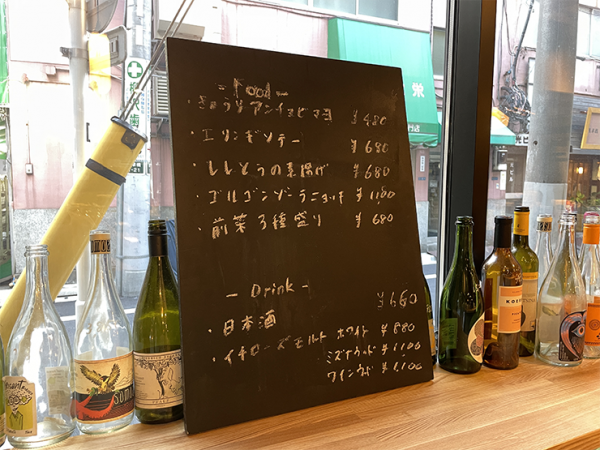 - Food -
・きゅうりアンチョビマヨ ¥480
・エリンギソテー ¥680
・ししとうの素揚げ ¥680
・ゴルゴンゾーラニョッキ ¥1180
・前菜3種盛り ¥680
- Drink -
・日本酒 ¥660
・イチローズモルト ホワイト ¥880
ミズナラウッド ¥1100
ワインウッド ¥1,100
栄